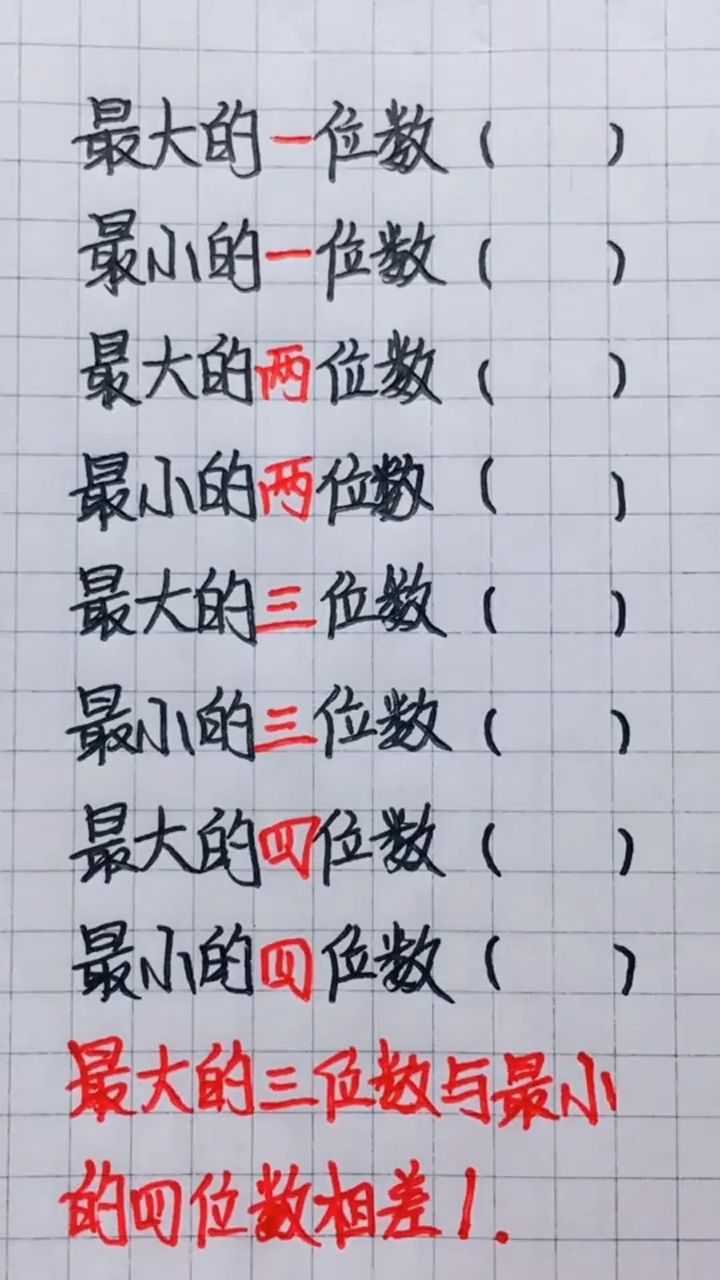 最大的一位数（ ）
最小的一位数（ ）
最大的两位数（ ）
最小的两位数（ ）
最大的三位数（ ）
最小的三位数（ ）
最大的四位数（ ）
最小的四位数（ ）
最大的三位数与最小
的四位数相差1.